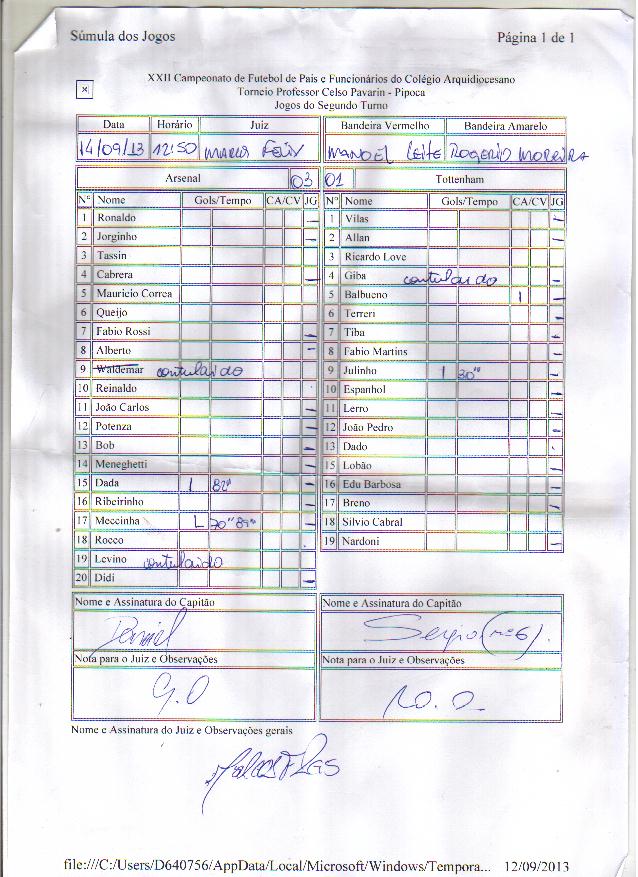 Súmula dos Jogos Página 1 de 1
XXII Campeonato de Futebol de Pais e Funcionários do Colégio Arquidiocesano
Torneio Professor Celso Pavarin - Pipoca
Jogos do Segundo Turno
Data Horário Juiz Bandeira Vermelho Bandeira Amarelo
14/09/13 12:50 MANOEL LEITE ROGERIO MOREIRA
Arsenal 03 01 Tottenham
Nº Nome Gols/Tempo CA/CV JG Nº Nome Gols/Tempo CA/CV JG
1 Ronaldo 1 Vilas
2 Jorginho 2 Allan
3 Tassin 3 Ricardo Love
4 Cabrera 4 Giba contundido
5 Mauricio Correa 5 Balbueno 1
6 Queijo 6 Terreri
7 Fabio Rossi 7 Tiba
8 Alberto 8 Fabio Martins
9 Waldemar contundido 9 Julinho 1 30"
10 Reinaldo 10 Espanhol
11 João Carlos 11 Lerro
12 Potenza 12 João Pedro
13 Bob 13 Dado
14 Meneghetti 15 Lobão
15 Dada 1 82" 16 Edu Barbosa
16 Ribeirinho 17 Breno
17 Meccinha 18 Silvio Cabral
18 Rocco 19 Nardoni
19 Levino contundido
20 Didi
Nome e Assinatura do Capitão Nome e Assinatura do Capitão
Daniel Sergio (nº6).
Nota para o Juiz e Observações Nota para o Juiz e Observações
9.0 10.0
Nome e Assinatura do Juiz e Observações gerais
file:///C:/Users/D640756/AppData/Local/Microsoft/Windows/Tempora... 12/09/2013